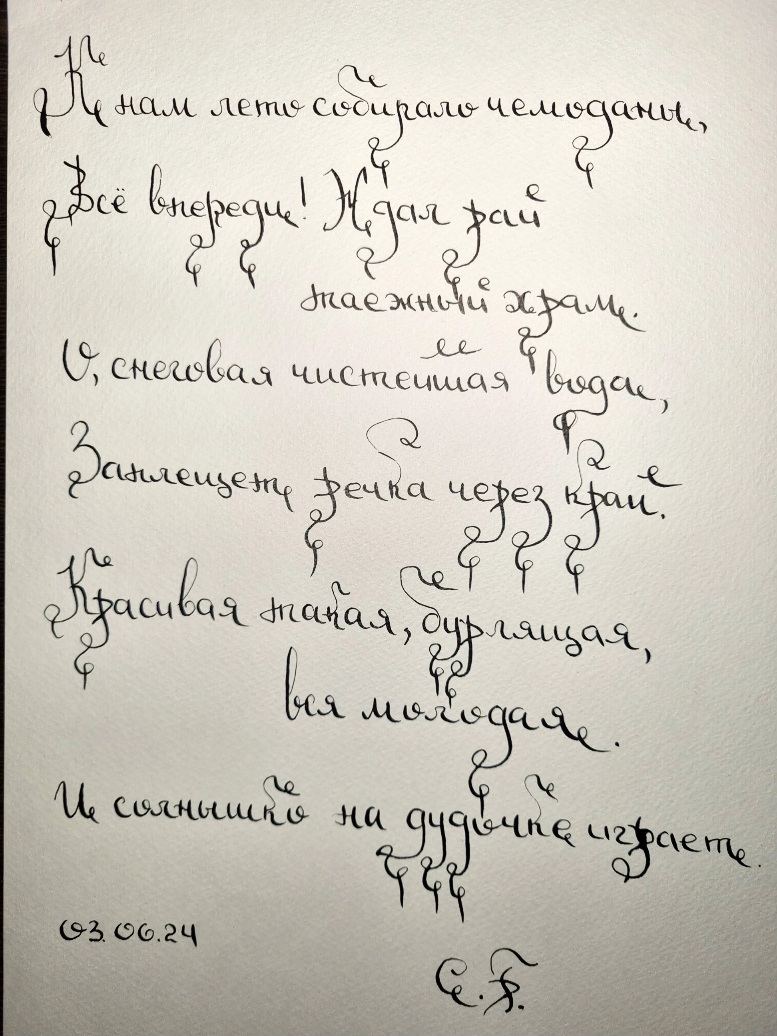 К нам лето собирало чемоданы,
Всё впереди! Ждал рай
таёжный храм.
О, снеговая чистейшая вода,
Заплещет речка через край.
Красивая такая, бурлящая,
вся молодая.
И солнышко на дудочке играет.
03.06.24
С.Г.